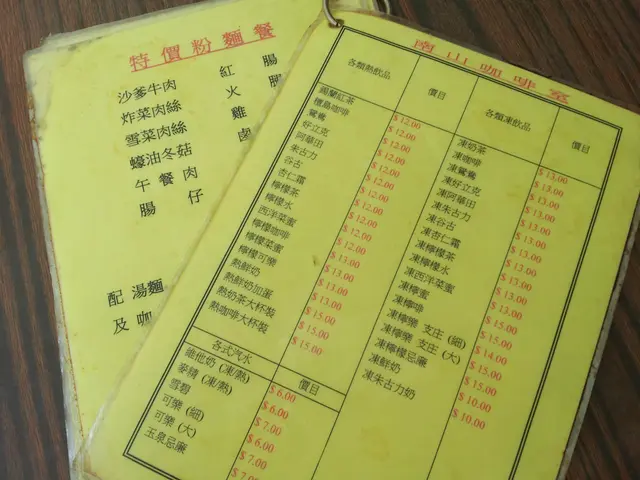 特價粉麵餐
沙爹牛肉 紅腸
炸菜肉絲 火腿
雪菜肉絲 雞
蠔油冬菇 鹵
午餐肉
腸仔
配湯麵
及咖
南山咖啡室
各類熱飲品 價目 各類凍飲品 價目
錫蘭紅茶 $12.00
檀島咖啡 $12.00
鴛鴦 $12.00
好立克 $12.00
阿華田 $12.00
朱古力 $12.00
谷古 $12.00
杏仁霜 $12.00
檸檬茶 $12.00
檸檬水 $12.00
西洋菜蜜 $13.00
檸檬咖啡 $13.00
檸檬菜蜜 $13.00
檸檬可樂 $13.00
熱鮮奶 $13.00
熱鮮奶加蛋 $15.00
熱奶茶大杯裝 $15.00
熱咖啡大杯裝 $15.00
凍奶茶 $13.00
凍咖啡 $13.00
凍鴛鴦 $13.00
凍好立克 $13.00
凍阿華田 $13.00
凍朱古力 $13.00
凍谷古 $13.00
凍杏仁霜 $13.00
凍檸檬茶 $13.00
凍檸檬水 $13.00
凍西洋菜蜜 $13.00
凍檸蜜 $15.00
凍檸啡 $15.00
凍檸樂 支庄 (細) $14.00
凍檸樂 支庄 (大) $15.00
凍檸檬忌廉 $15.00
凍鮮奶 $10.00
凍朱古力奶 $10.00
各式汽水 價目
維他奶 (凍/熱) $6.00
麥精 (凍/熱) $6.00
雪碧 $7.00
可樂 (細) $6.00
可樂 (大) $7.00
玉泉忌廉 $7.00